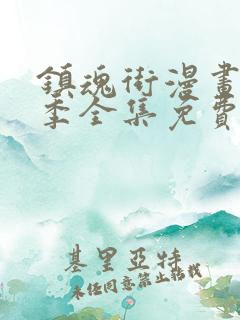 鎮魂街漫畫
季全集免費
基里亞特
未經同意禁止轉載